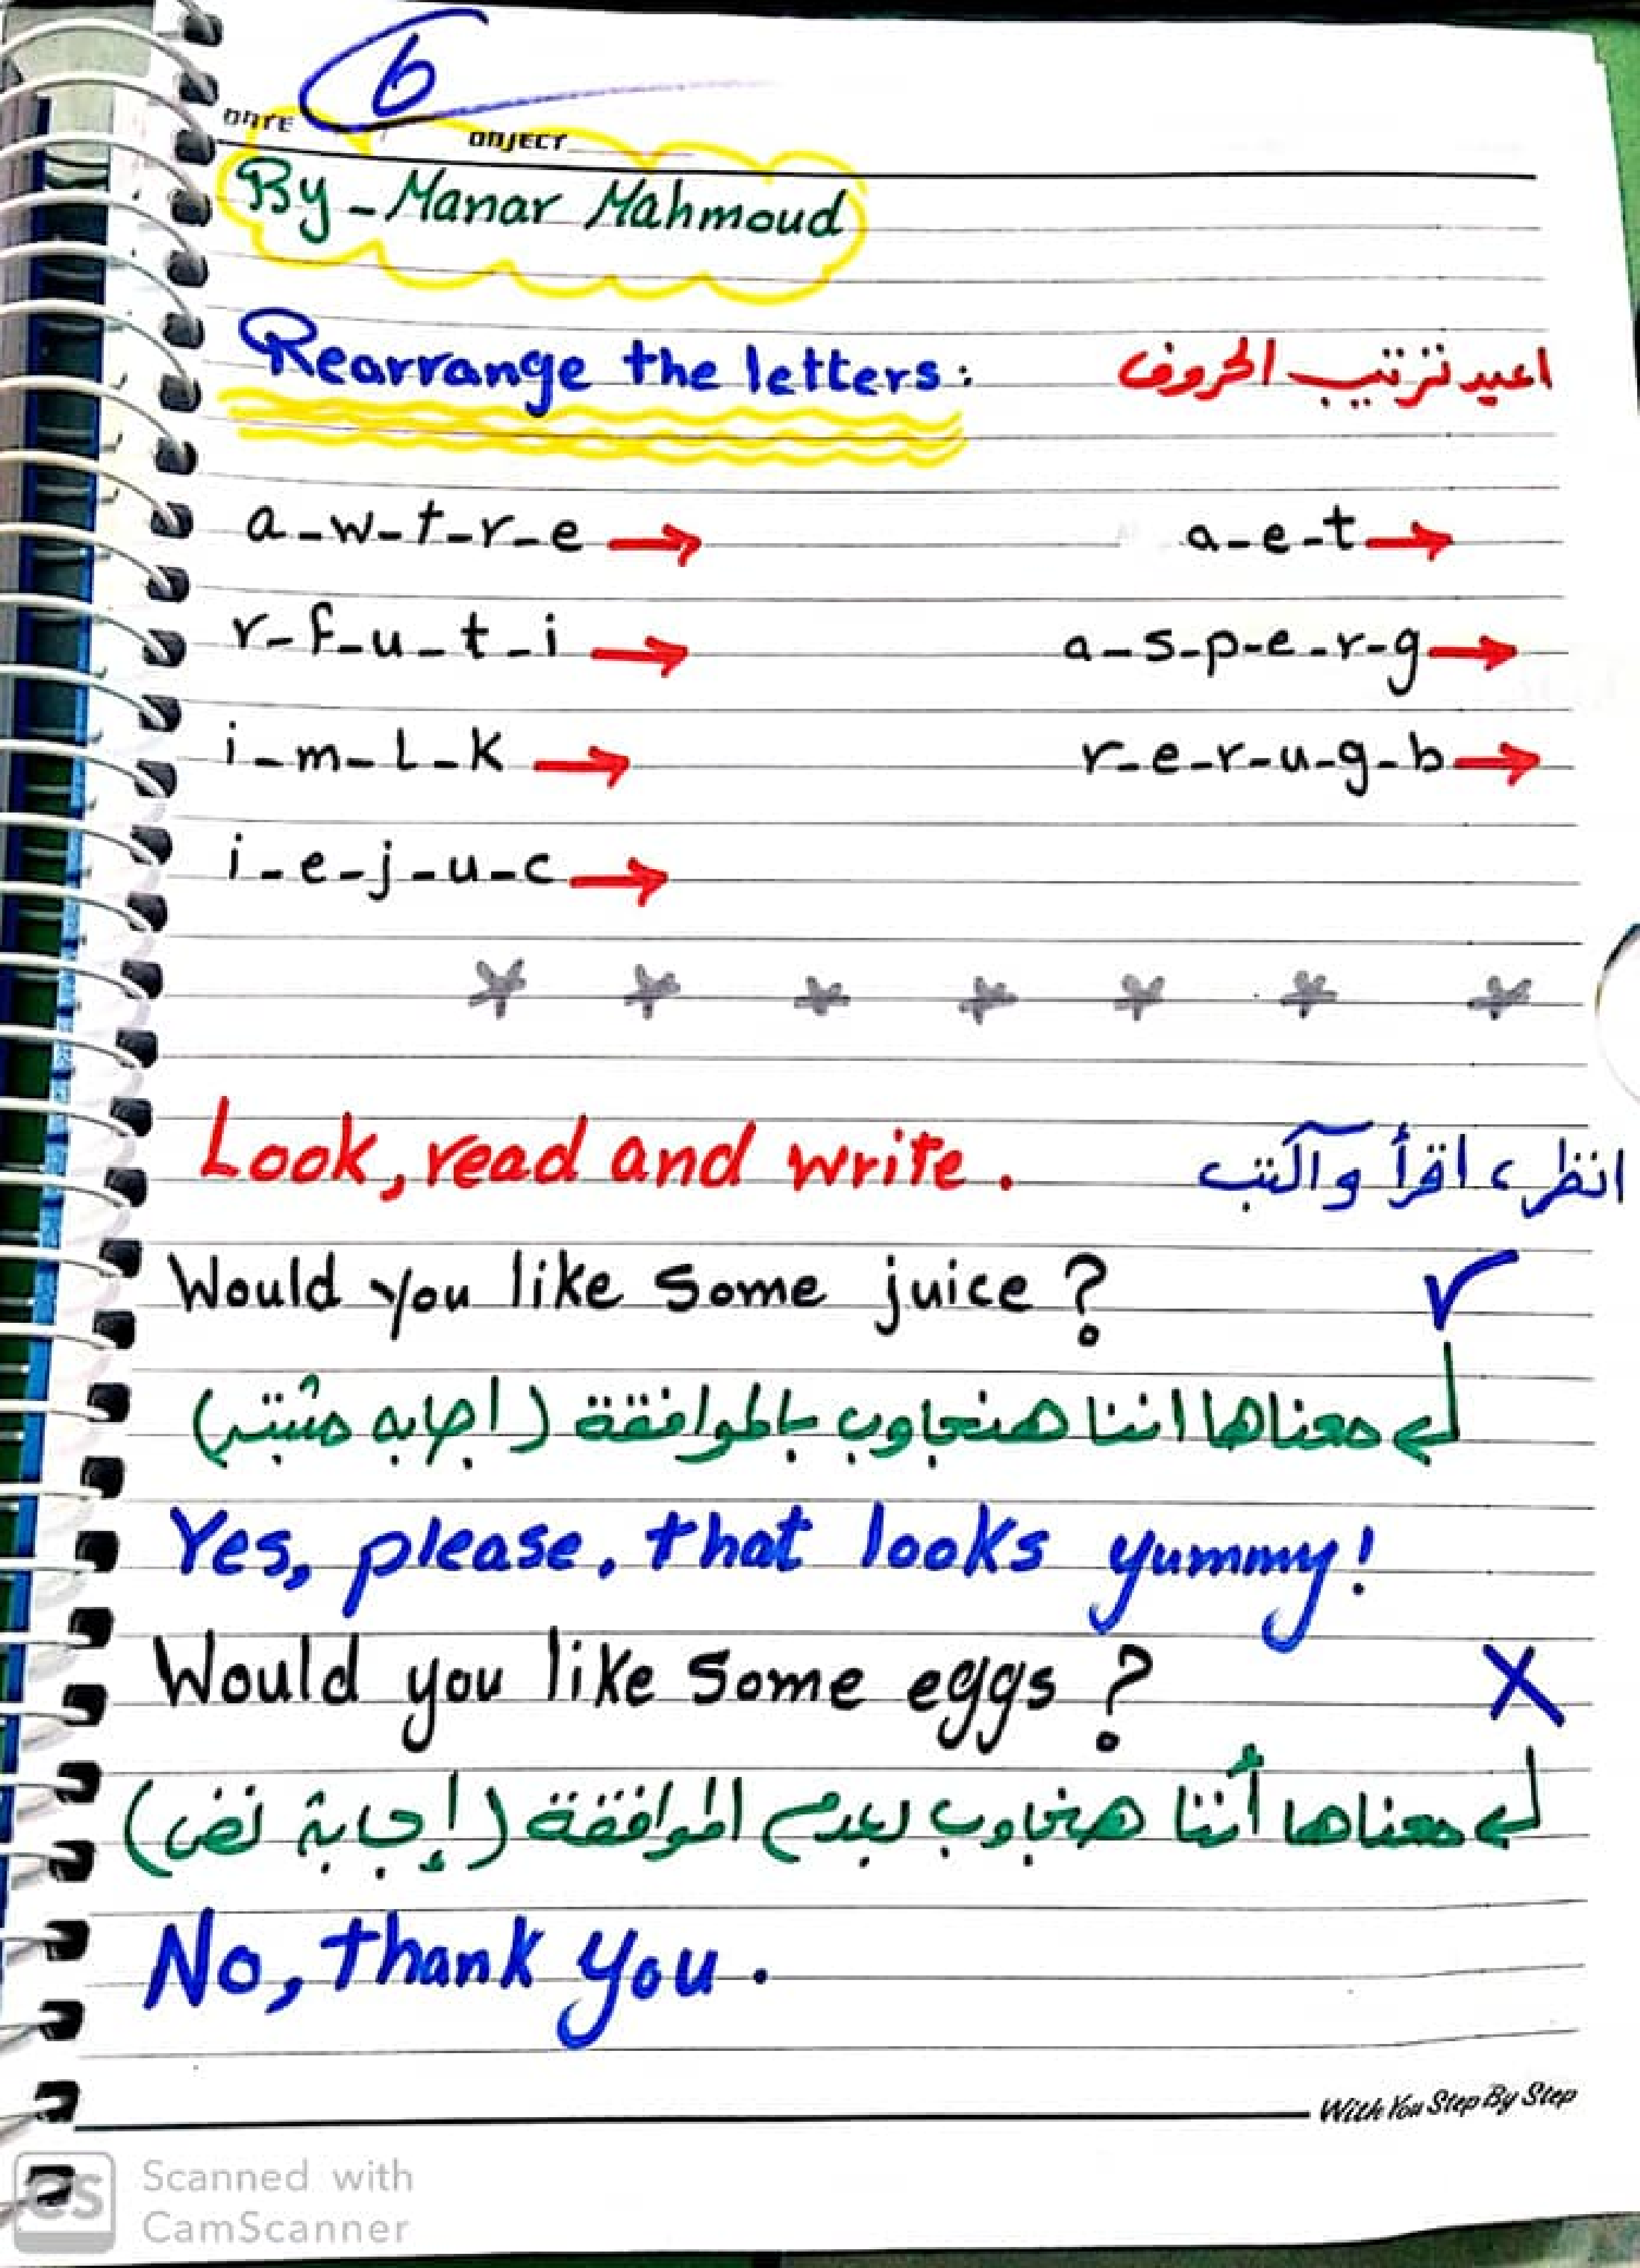 6
DATE OBJECT
By - Manar Mahmoud
Rearrange the letters: اعيد ترتيب الحروف
a-w-t-r-e → a-e-t →
r-f-u-t-i → a-s-p-e-r-g →
i-m-l-k → r-e-r-u-g-b →
i-e-j-u-c →
Look, read and write. انظر، اقرأ واكتب
Would you like some juice? ✓
معناها اننا هنجاوب بالموافقة (اجابه مثبته)
Yes, please, that looks yummy!
Would you like some eggs? X
معناها أننا هنجاوب بعدم الموافقة (إجابة نفى)
No, thank you.
With You Step By Step
CS Scanned with
CamScanner